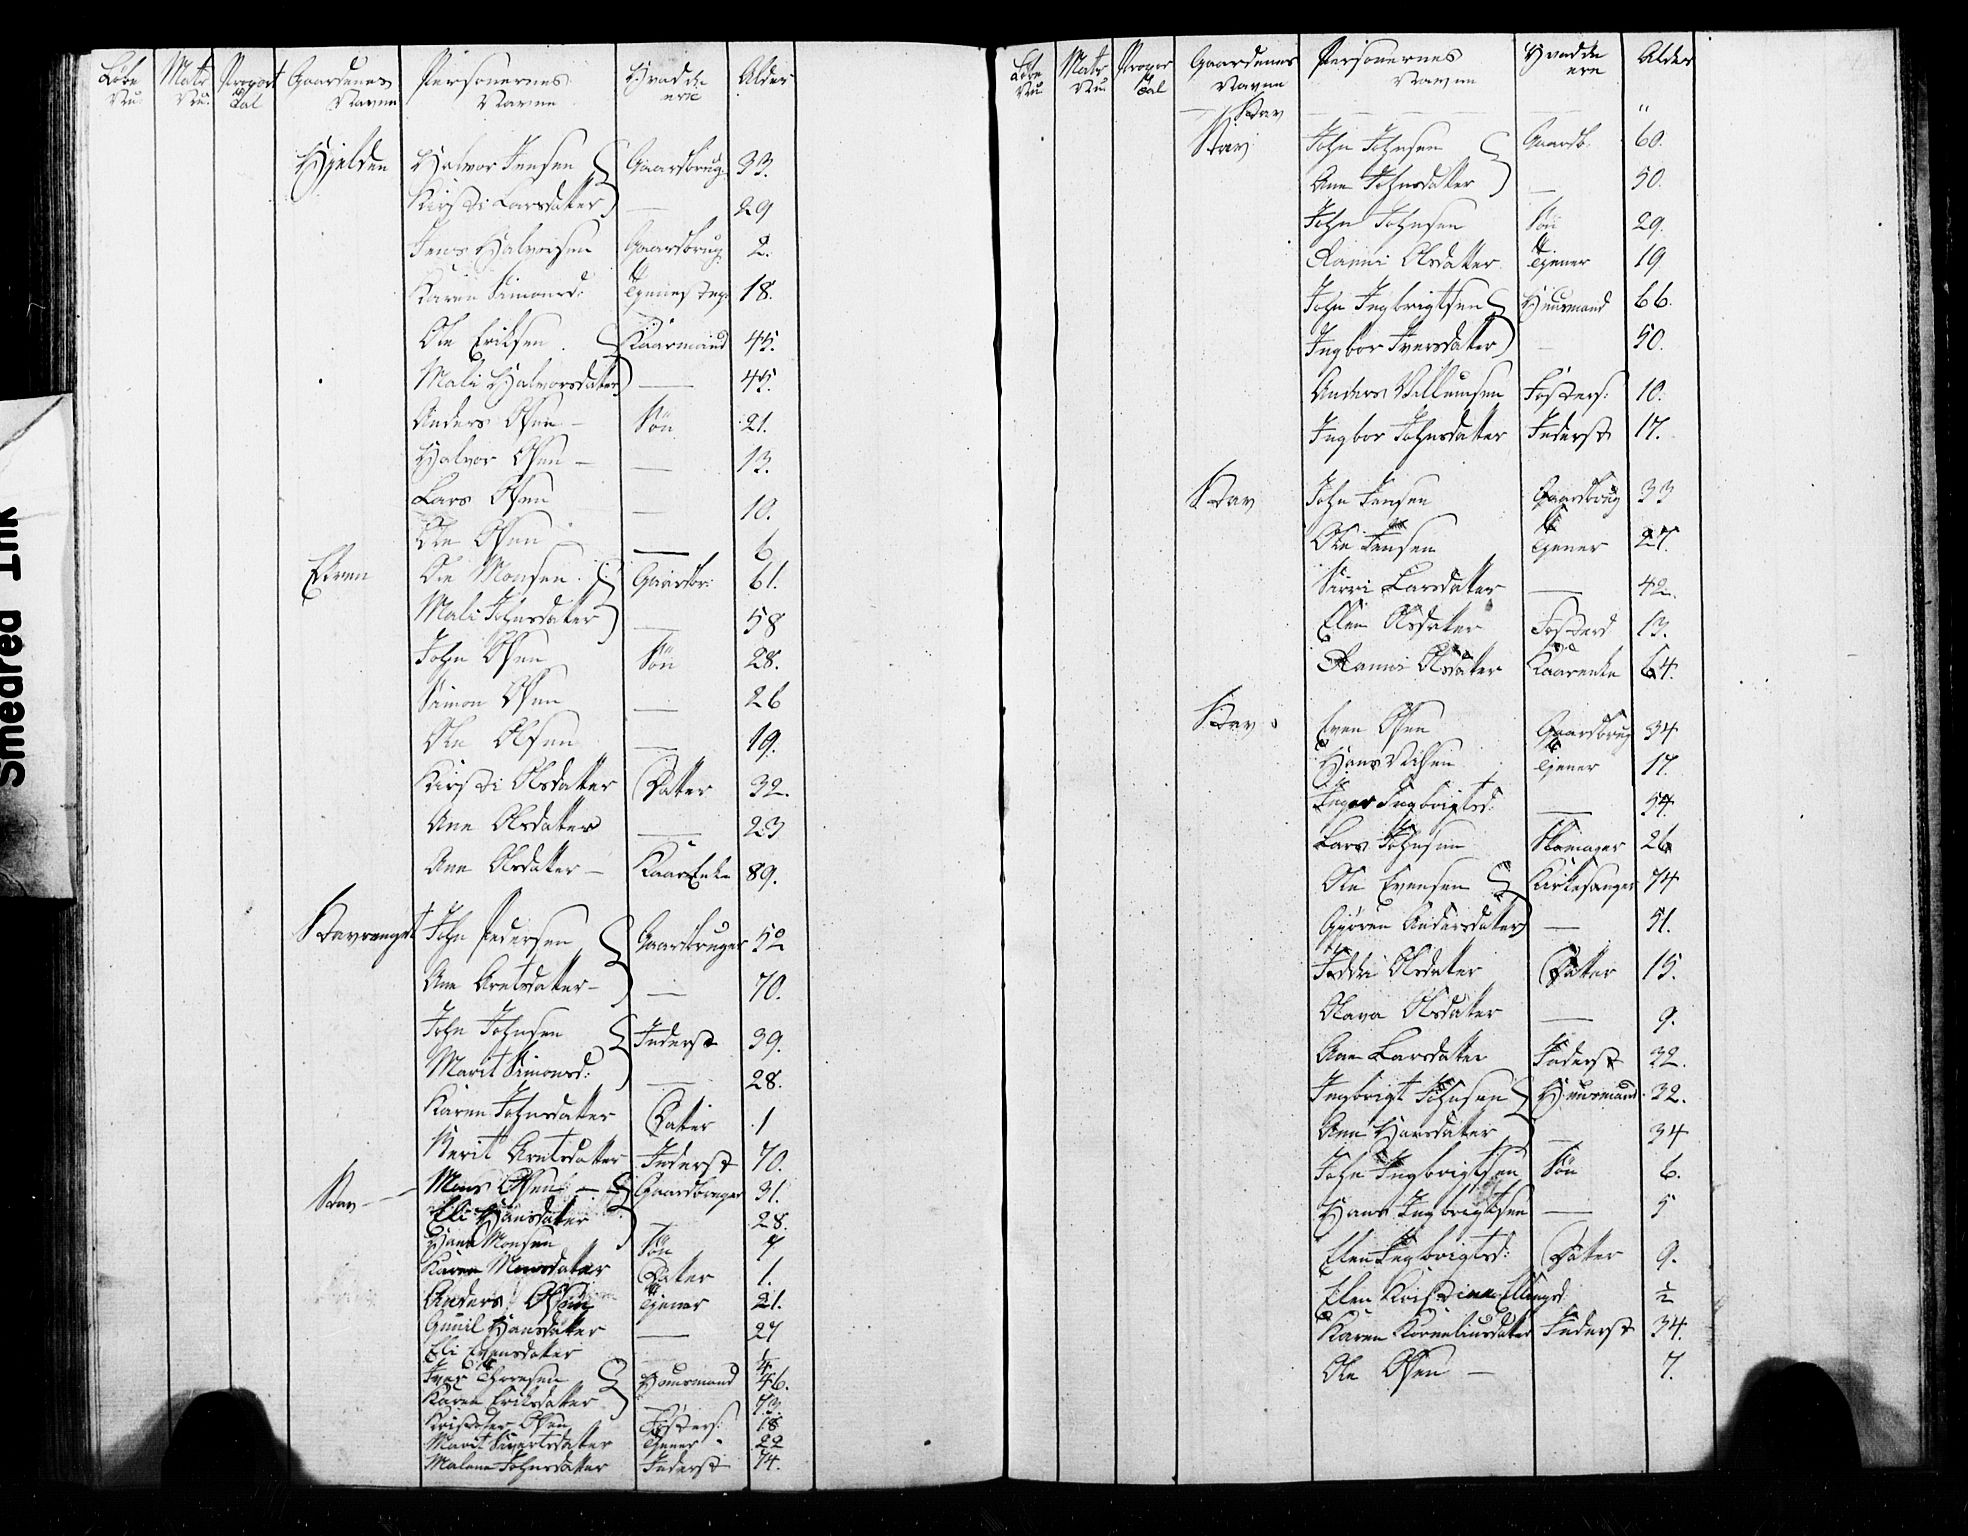 Løbe Nu. Matr Nu. Proport Tal Gaardenes Navne Personernes Navne Hvad de ere Alder
Hjelden Halvor Jensen Gaardbrug. 33.
Kirsti Larsdatter — 29
Jens Halvorsen Gaardbrug. 2.
Karen Simonsd: 18.
Ole Eriksen Kaarmand 45.
Mali Halvorsdatter — 45.
Anders Olsen — Søn 21.
Halvor Olsen — — 13.
Lars Olsen — 10.
Ole Olsen — 6
Ole Monsen Gaardbr: 61.
Mali Johnsdatter — 58
John Olsen Søn 28.
Simon Olsen — 26
Ole Olsen — 19.
Kirsti Olsdatter Datter 32.
Ane Olsdatter — 23
Ane Olsdatter — KaarEnke 89.
Stavrenget John Pedersen Gaardbruger 52
Ane Arntsdatter — — 70.
John Johnsen Inderst 39.
Marit Simonsd: — 28.
Karen Johnsdatter Datter 1
Berit Arntsdatter Inderst 70.
Stav — Mons Olsen — Gaardbruger 31.
Eli Hansdatter — 28.
Hans Monsen Søn 7
Karen Monsdatter Datter 1.
Anders Olsen Tjener 21.
Gunil Hansdatter — 27
Eli Evensdatter ¼
Iver Thoresen Huusmand 46.
Karen Eriksdatter — 73.
Kristofer Olsen Fosters: 18
Marit Sivertsdatter Tjener 22
Malene Johnsdatter Inderst 74.
Løbe Nu. Matr Nu. Propor Tal Gaardenes Navne Personernes Navne Hvad de ere Alder
— Stav — — — — "
Stav John Johnsen Gaardb. 60.
Ane Johnsdatter — 50.
John Johnsen Søn 29.
Ranni Olsdatter Tjener 19
John Ingbrigtsen Huusmand 66.
Ingbor Iversdatter — 50.
Anders Villumsen Fosters: 10.
Ingbor Johnsdatter Inderst 17.
Stav John Jensen Gaardbrug 33
Ole Jensen Tjener 27.
Sirri Larsdatter — 42.
Elen Olsdatter Fosterd 13.
Ranni Olsdatter Kaarenke 64.
Stav Even Olsen Gaardbrug 34
Hans Tjener 17.
Inger Ingbrigtsd: — 54.
Lars Johnsen Skomager 26
Ole Evensen Kirkesanger 74
Gjøren Andersdatter — 51.
Olsdatter Datter 15.
Olava Olsdatter — 9.
Ane Larsdatter Inderst 32.
Ingbrigt Johnsen Huusmand 32.
Ane Hansdatter — 34
John Ingbrigtsen Søn 6.
Hans Ingbrigtsen — 5
Elen Ingbrigtsd: Datter 9.
Elen Kristina Ellingsd: ½
Karen Korneliusdatter Inderst 34.
Ole Olsen — 7.
Smeared Ink